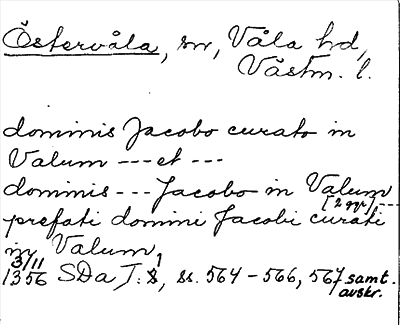 Östervåla, sn, Våla hd,
Västm. l.
dominis Jacobo curato in
Valum --- et ---
dominis --- Jacobo in Valum
[2 ggr] ---
prefati domini Jacobi curati
in Valum,
3/11
1356 SDa I: 1, ss. 564-566, 567 samt.
avskr.